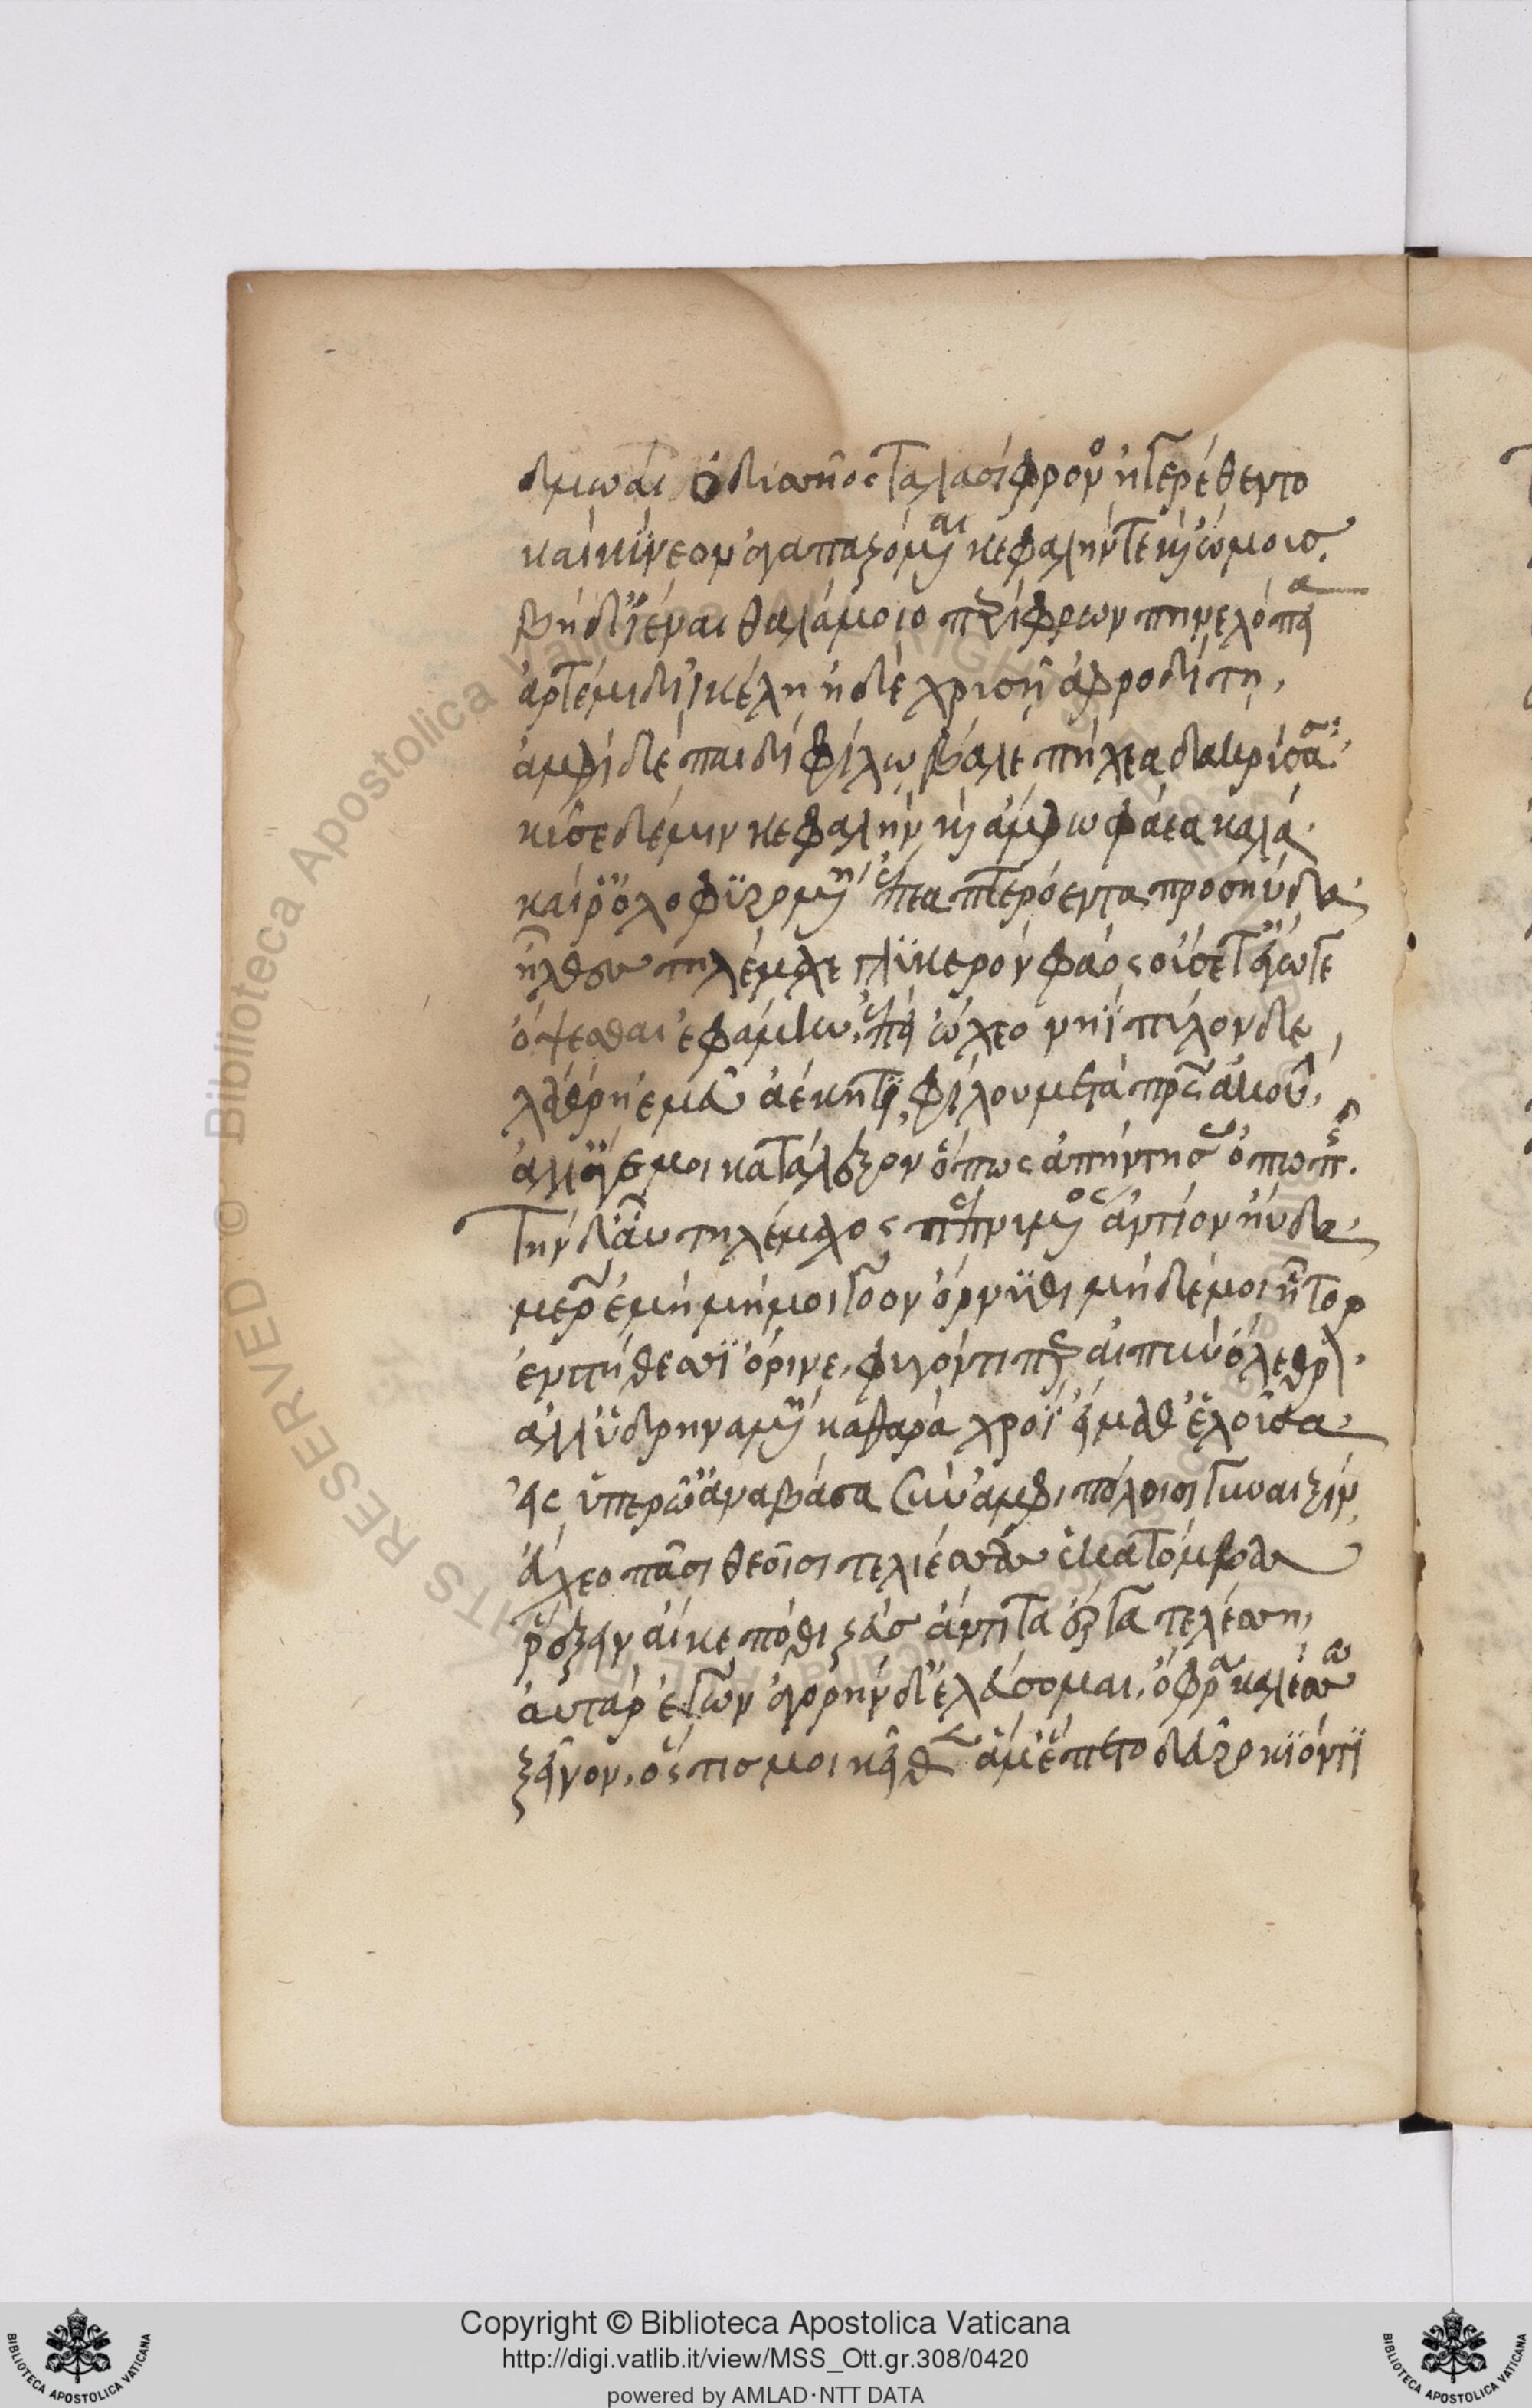 δμωαὶ ὀδυσσῆος ταλασίφρονο ἠγερέθεντο
καὶ κύνεον ἀγαπαζόμεναι κεφαλήν τε καὶ ὤμους.
βῆ δ' ἴεναι θαλάμοιο περίφρων πηνελόπεια
ἀρτέμιδι ἰκέλη ἠδὲ χρυσῆ ἀφροδίτη,
ἀμφὶ δὲ παιδὶ φίλω βάλε πήχεα δακρύσασα·
κύσε δέ μιν κεφαλὴν καὶ ἄμφω φάεα καλά·
καί ῥ' ὀλοφυρομένη ἔπεα πτερόεντα προσηύδα·
ἦλθες τηλέμαχε γλυκερὸν φάος οὔ σ' ἔτ' ἔγωγε
ὄψεσθαι ἐφάμην, ἐπεὶ ὤχεο νηῒ πύλονδε
λάθρη ἐμεῦ ἀέκητι, φίλου μετὰ πατρὸς ἀκουήν,
ἀλλ' ἄγε μοι κατάλεξον ὅπως ἤντησας ὀπωπῆς.
Τὴν δ' αὖ τηλέμαχος πεπνυμένος ἀντίον ηὔδα·
μῆτερ ἐμὴ μή μοι γόον ὄρνυθι μηδέ μοι ἦτορ
ἐν στήθεσσιν ὄρινε, φυγόντι περ αἰπὺν ὄλεθρον.
ἀλλ' ὑδρηναμένη καθαρὰ χροῒ εἵμαθ' ἑλοῦσα·
εἰς ὑπερῶ' ἀναβᾶσα σὺν ἀμφιπόλοισι γυναιξὶν
εὔχεο πᾶσι θεοῖσι τεληέσσας ἑκατόμβας
ῥέξειν αἴ κε πόθι ζεὺς ἄντιτα ἔργα τελέσση,
αὐτὰρ ἐγὼν ἀγορήνδ' ἐλεύσομαι, ὄφρα καλέσσω
ξεῖνον, ὅτις μοι κεῖθεν ἅμ' ἕσπετο δεῦρο κιόντι
Copyright © Biblioteca Apostolica Vaticana
http://digi.vatlib.it/view/MSS_Ott.gr.308/0420
powered by AMLAD·NTT DATA